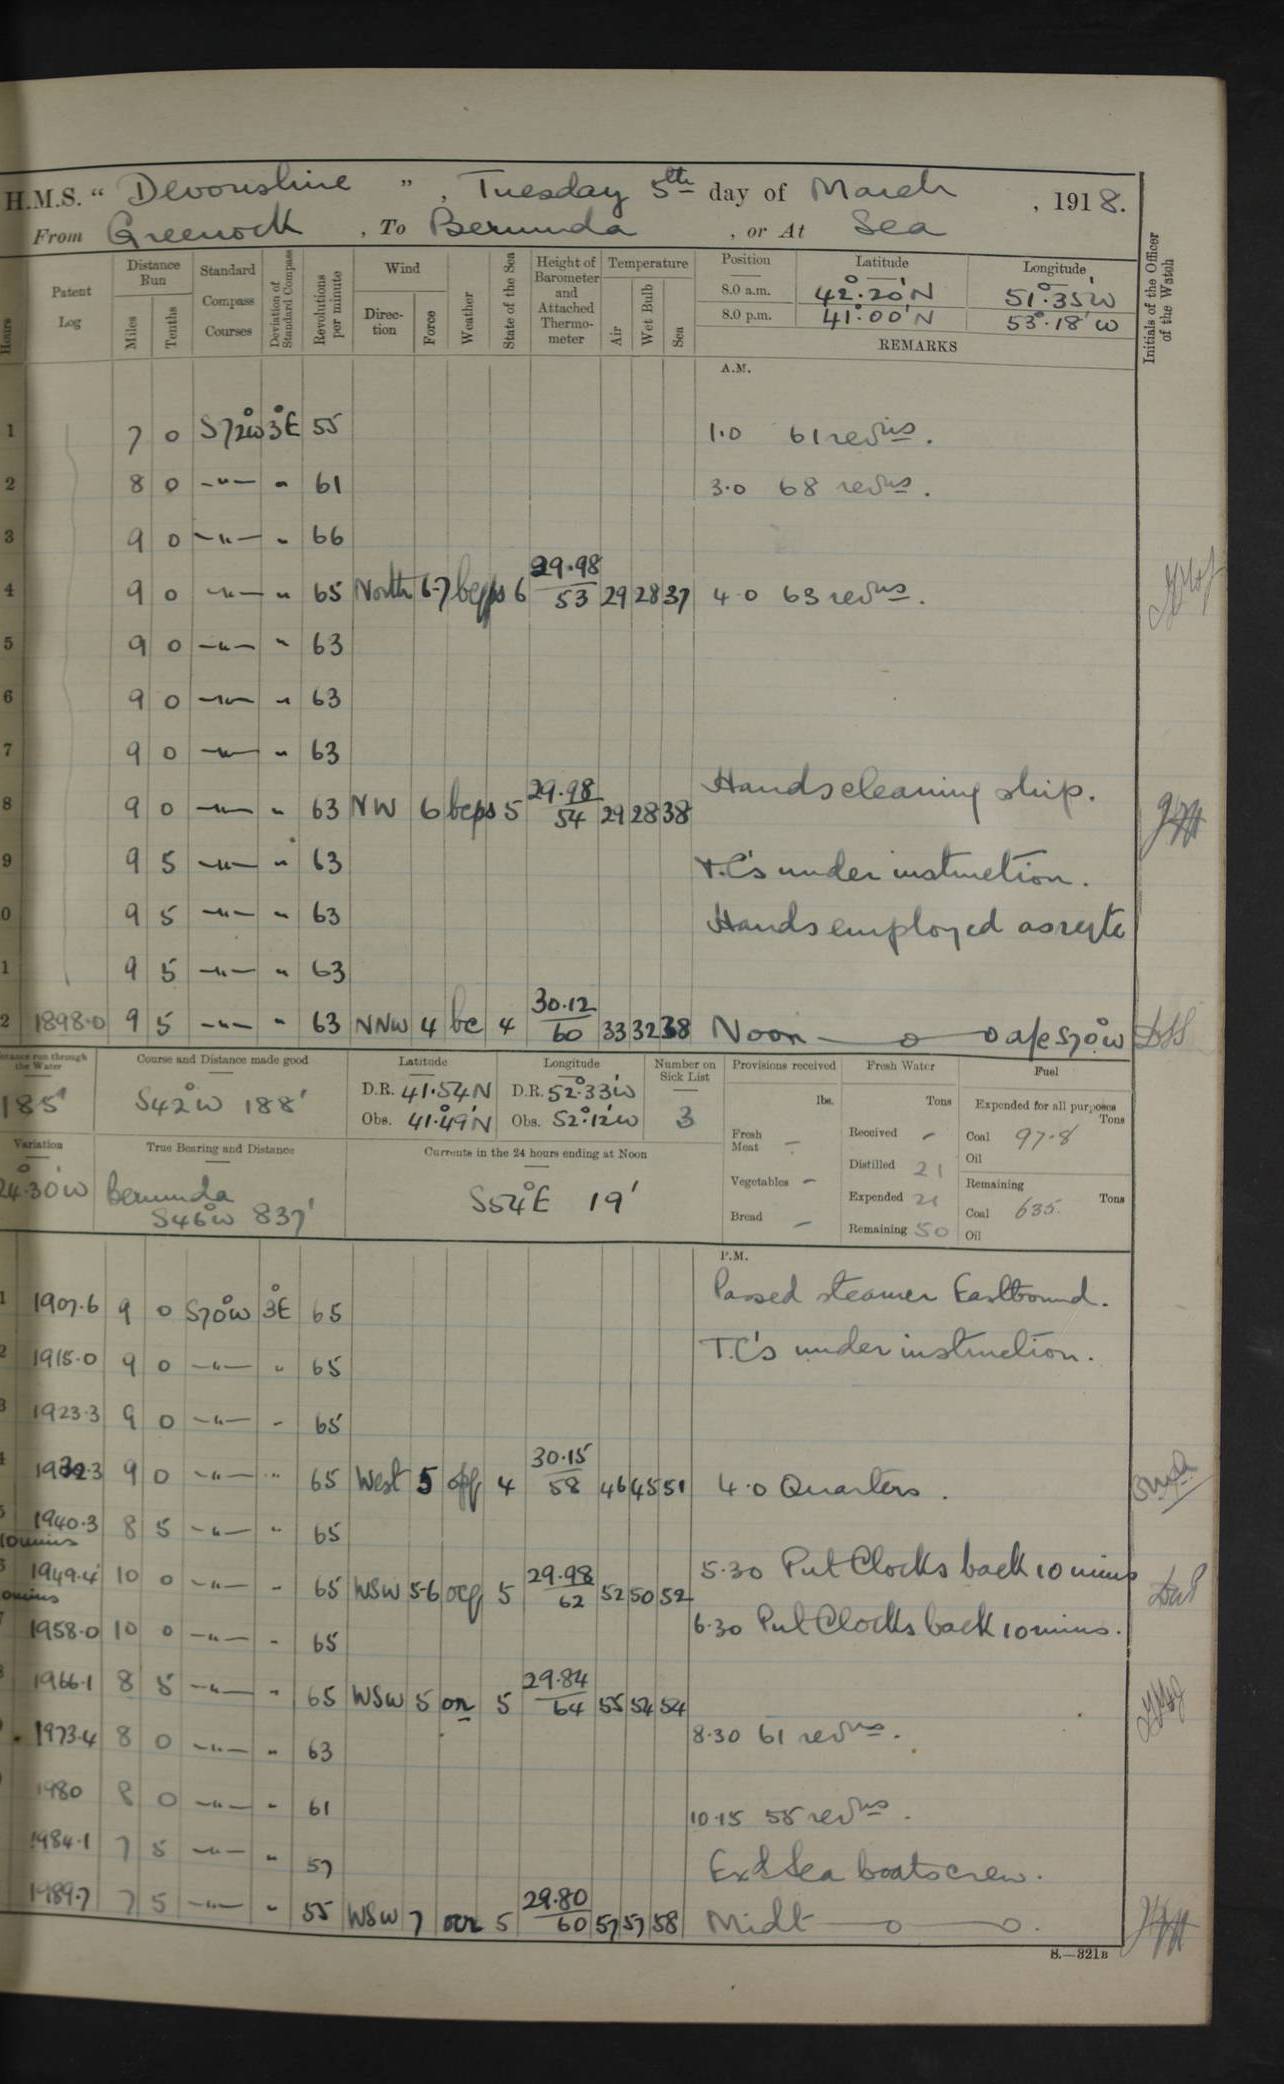 H.M.S. " Devonshire ", Tuesday 5th day of March , 1918.
From Greenock , To Bermuda , or At Sea
Hours Patent Log Distance Run Miles Tenths Standard Compass Courses Deviation of Standard Compass Revolutions per minute Wind Direction Force Weather State of the Sea Height of Barometer and Attached Thermometer Temperature Air Wet Bulb Sea Position Latitude Longitude Initials of the Officer of the Watch
8.0 a.m. 42°.20'N 51°.35'W
8.0 p.m. 41°.00'N 53°.18'W
REMARKS
A.M.
1 7 0 S72°W 3°E 55 1.0 61 revns.
2 8 0 -"- " 61 3.0 68 revns.
3 9 0 -"- " 66
4 9 0 -"- " 65 North 6-7 6 29.98 53 29 28 37 4.0 63 revns.
5 9 0 -"- " 63
6 9 0 -"- " 63
7 9 0 -"- " 63
8 9 0 -"- " 63 NW 6 bcps 5 29.98 54 29 28 38 Hands cleaning ship.
9 9 5 -"- " 63 T.C's under instruction.
0 9 5 -"- " 63 Hands employed as reqte
1 9 5 -"- " 63
2 1898.0 9 5 -"- " 63 NNW 4 bc 4 30.12 60 33 32 38 Noon —o— o a/c S70°W
Distance run through the Water 185' Course and Distance made good S42°W 188' Latitude D.R. 41.54N Obs. 41°.49'N Longitude D.R. 52°.33'W Obs. 52°.12'W Number on Sick List 3
Variation 24°.30'W True Bearing and Distance Bermuda S46°W 837' Currents in the 24 hours ending at Noon S54°E 19'
Provisions received lbs. Fresh Meat - Vegetables - Bread -
Fresh Water Tons Received - Distilled 21 Expended 21 Remaining 50
Fuel Expended for all purposes Tons Coal 97.8 Oil Remaining Tons Coal 635. Oil
P.M.
1 1907.6 9 0 S70°W 3°E 65 Passed steamer Eastbound.
2 1915.0 9 0 -"- " 65 T.C's under instruction.
3 1923.3 9 0 -"- - 65
4 1932.3 9 0 -"- " 65 West 5 4 30.15 58 46 45 51 4.0 Quarters.
5 1940.3 8 5 -"- " 65
10 mins
1949.4 10 0 -"- - 65 WSW 5-6 5 29.98 62 52 50 52 5.30 Put Clocks back 10 mins
10 mins
1958.0 10 0 -"- - 65 6.30 Put Clocks back 10 mins.
1966.1 8 5 -"- - 65 WSW 5 5 29.84 64 55 54 54
1973.4 8 0 -"- " 63 8.30 61 revns.
1980 8 0 -"- - 61 10.15 55 revns.
1984.1 7 5 -"- " 57 Exd Sea boats crew.
1989.7 7 5 -"- " 55 WSW 7 5 29.80 60 57 57 58 Midt —o— o.
S.—321B